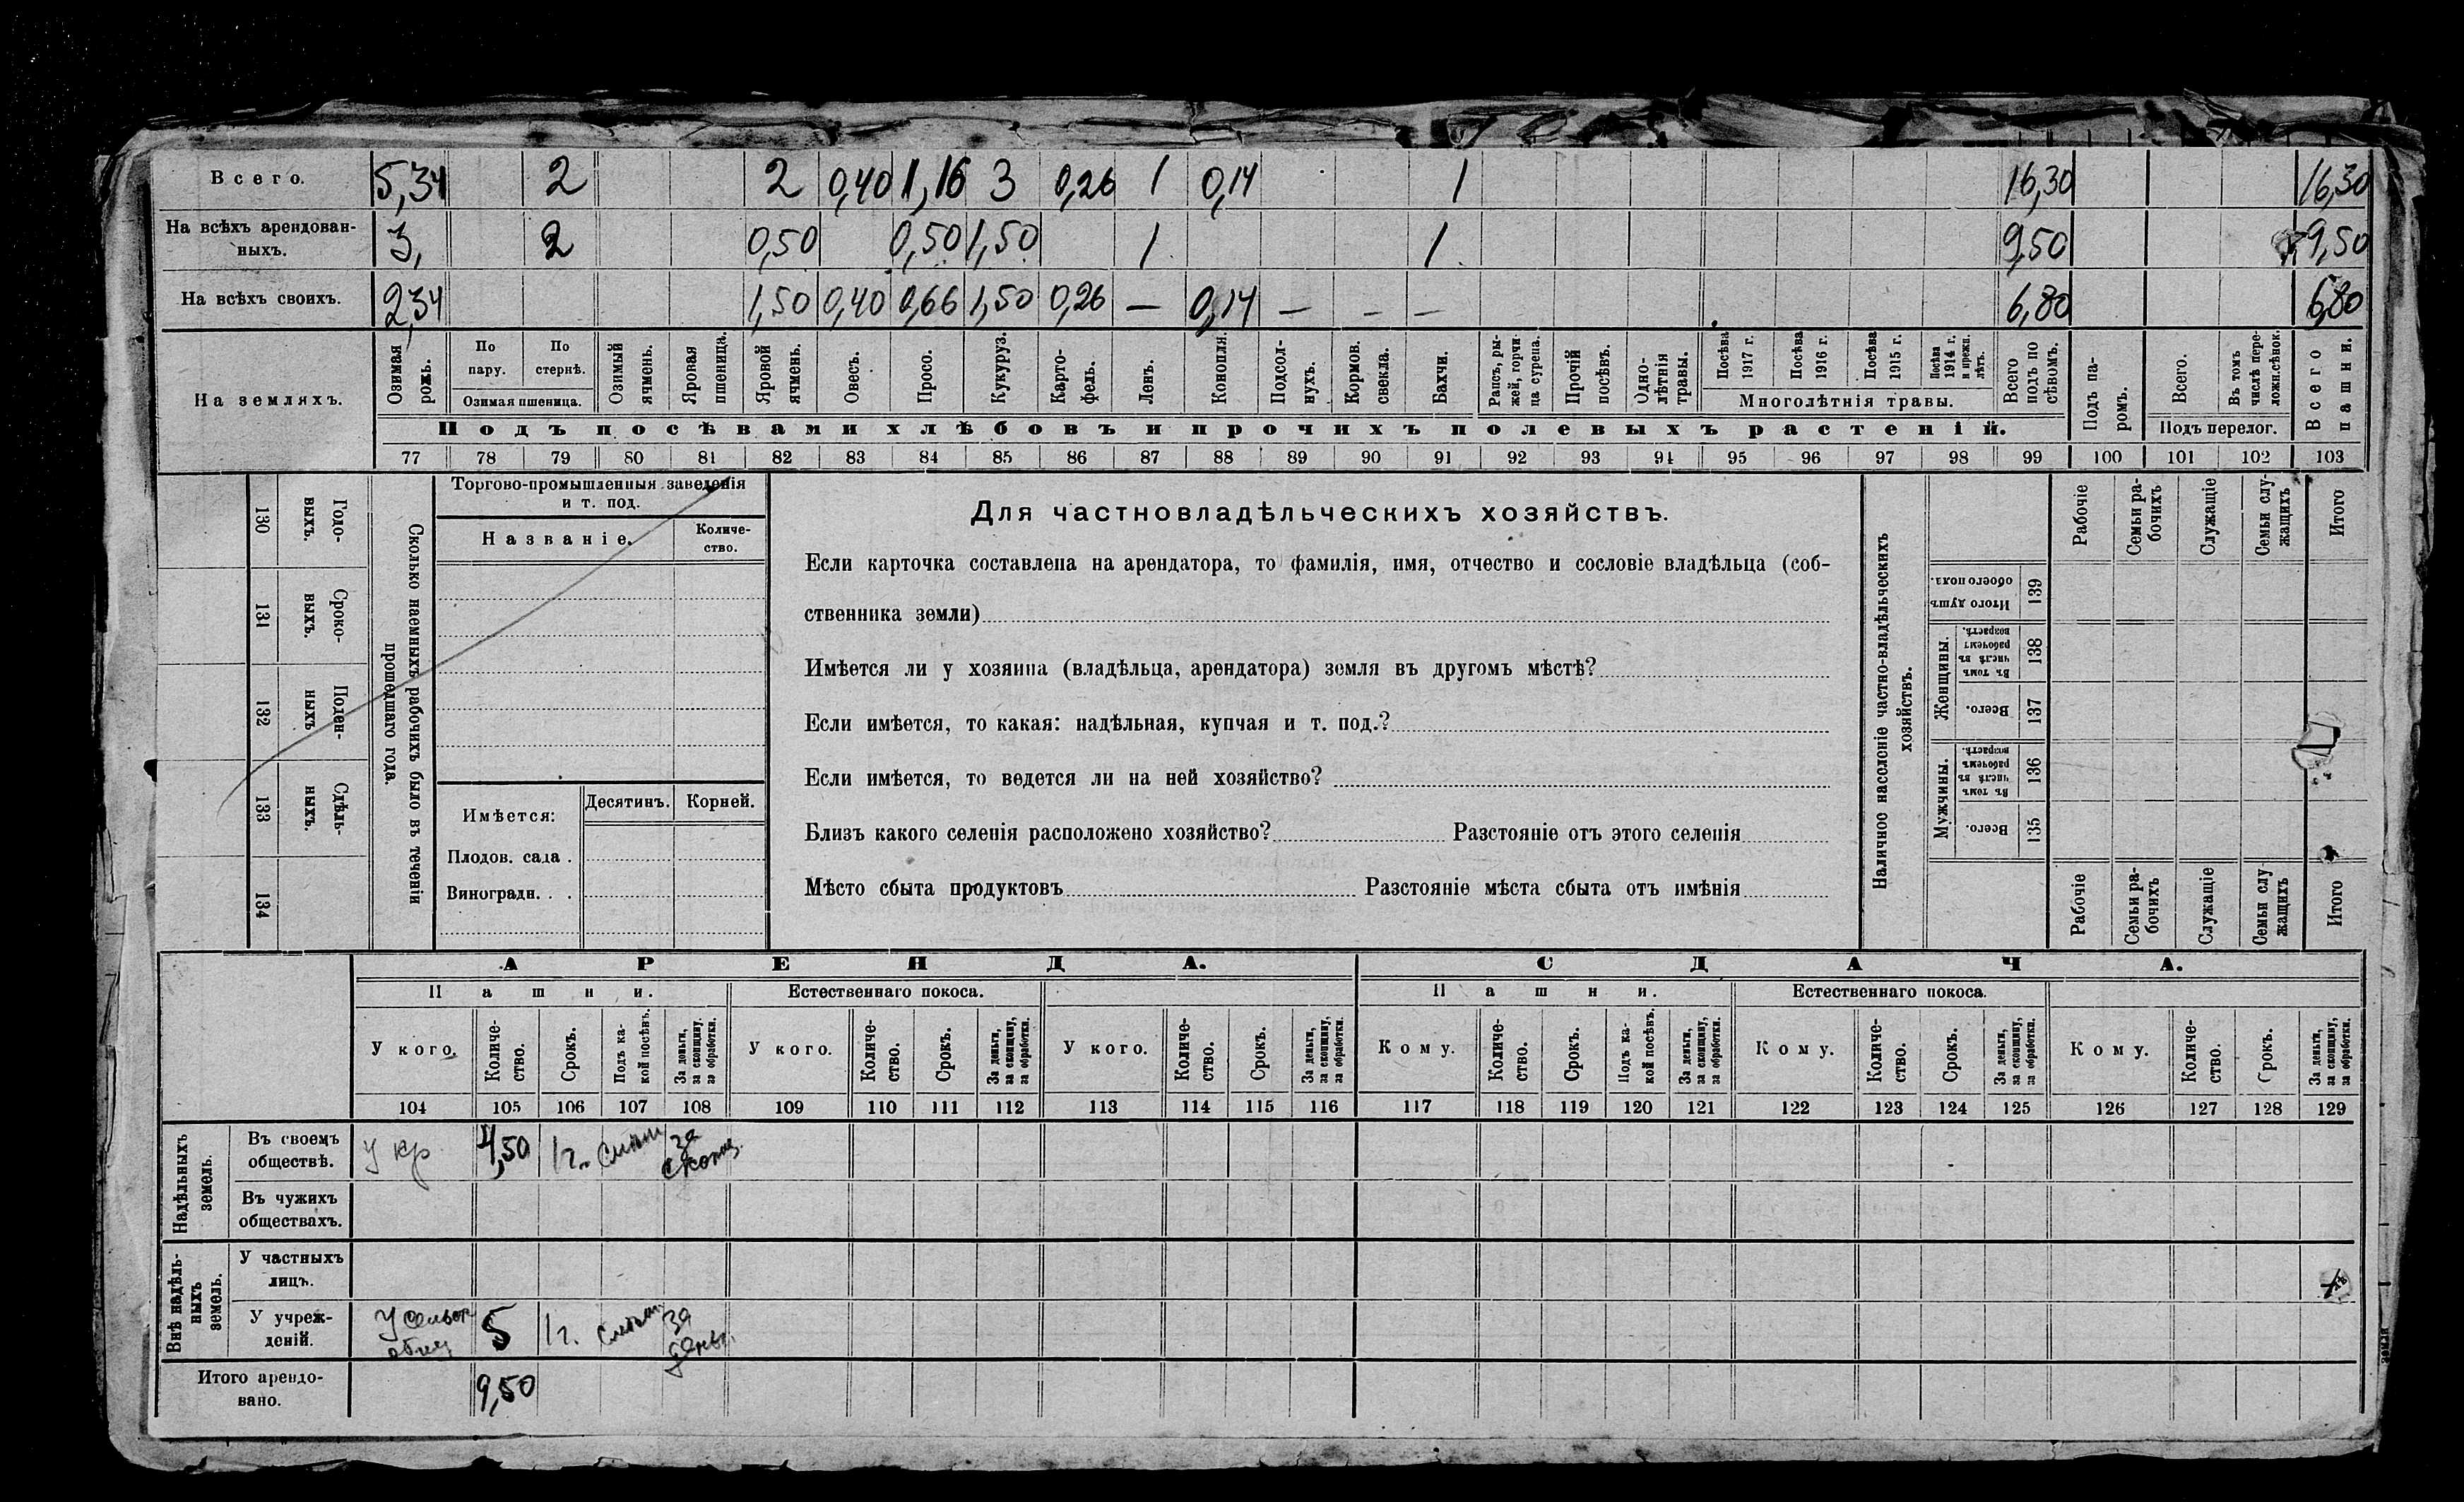 Всего. 5,34 2 2 0,40 1,16 3 0,26 1 0,14 1 16,30 16,30
На всѣхъ арендован-
ныхъ. 3, 2 0,50 0,50 1,50 1 1 9,50 9,50
На всѣхъ своихъ. 2,34 1,50 0,40 0,66 1,50 0,26 — 0,14 — — — 6,80 6,80
На земляхъ.
Озимая рожь.
По пару.
По стернѣ.
Озимая пшеница.
Озимый ячмень.
Яровая пшеница.
Яровой ячмень.
Овесъ.
Просо.
Кукуруз.
Карто-
фель.
Ленъ.
Конопля.
Подсол-
нухъ.
Кормов.
свекла.
Бахчи.
Рапсъ, ры-
жей, горчи-
ца сурепа.
Прочій
посѣвъ.
Одно-
лѣтнія
травы.
Посѣва
1917 г.
Посѣва
1916 г.
Посѣва
1915 г.
Посѣва
1914 г.
и прежн.
лѣтъ.
Многолѣтнія травы.
Всего
подъ по
сѣвомъ.
Подъ па-
ромъ.
Всего.
Въ томъ
числѣ пере-
ложн.сѣнок.
Подъ перелог.
Всего
пашни.
Подъ посѣвами хлѣбовъ и прочихъ полевыхъ растеній.
77 78 79 80 81 82 83 84 85 86 87 88 89 90 91 92 93 94 95 96 97 98 99 100 101 102 103
130 Годо-
выхъ.
131 Сроко-
выхъ.
132 Поден-
ныхъ
133 Сдѣль-
ныхъ.
134
Сколько наемныхъ рабочихъ было въ теченіи
прошедшаго года.
Торгово-промышленныя заведенія
и т. под.
Названіе.
Количе-
ство.
Имѣется:
Десятинъ.
Корней.
Плодов. сада .
Виноградн. . .
Для частновладѣльческихъ хозяйствъ.
Если карточка составлена на арендатора, то фамилія, имя, отчество и сословіе владѣльца (соб-
ственника земли)
Имѣется ли у хозяина (владѣльца, арендатора) земля въ другомъ мѣстѣ?
Если имѣется, то какая: надѣльная, купчая и т. под.?
Если имѣется, то ведется ли на ней хозяйство?
Близъ какого селенія расположено хозяйство? Разстояніе отъ этого селенія
Мѣсто сбыта продуктовъ Разстояніе мѣста сбыта отъ имѣнія
Наличное населеніе частно-владѣльческихъ
хозяйствъ.
Рабочіе
Семьи ра-
бочихъ
Служащіе
Семьи слу-
жащихъ
Итого
Итого душъ
обоего пола.
139
Женщины.
Въ томъ
числѣ въ
рабочемъ
возрастѣ.
138
Всего.
137
Мужчины.
Въ томъ
числѣ въ
рабочемъ
возрастѣ.
136
Всего.
135
Рабочіе
Семьи ра-
бочихъ
Служащіе
Семьи слу
жащихъ
Итого
АРЕНДА.
СДАЧА.
Пашни. Естественнаго покоса. Пашни. Естественнаго покоса.
У кого.
Количе-
ство.
Срокъ.
Подъ ка-
кой посѣвъ.
За деньги,
за скопщину,
за обработки.
У кого.
Количе-
ство.
Срокъ.
За деньги,
за скопщину,
за обработки.
У кого.
Количе-
ство.
Срокъ.
За деньги,
за скопщину,
за обработки.
Кому.
Количе-
ство.
Срокъ.
Подъ ка-
кой посѣвъ.
За деньги,
за скопщину,
за обработки.
Кому.
Количе-
ство.
Срокъ.
За деньги,
за скопщину,
за обработки.
Кому.
Количе-
ство.
Срокъ.
За деньги,
за скопщину,
за обработки.
104 105 106 107 108 109 110 111 112 113 114 115 116 117 118 119 120 121 122 123 124 125 126 127 128 129
Надѣльныхъ
земель.
Въ своемъ
обществѣ. У кр 4,50 1 г. за
Въ чужихъ
обществахъ.
Внѣ надѣль-
ныхъ
земель.
У частныхъ
лицъ.
У учреж-
деній. У 5 1 г. за
Итого арендо-
вано. 9,50